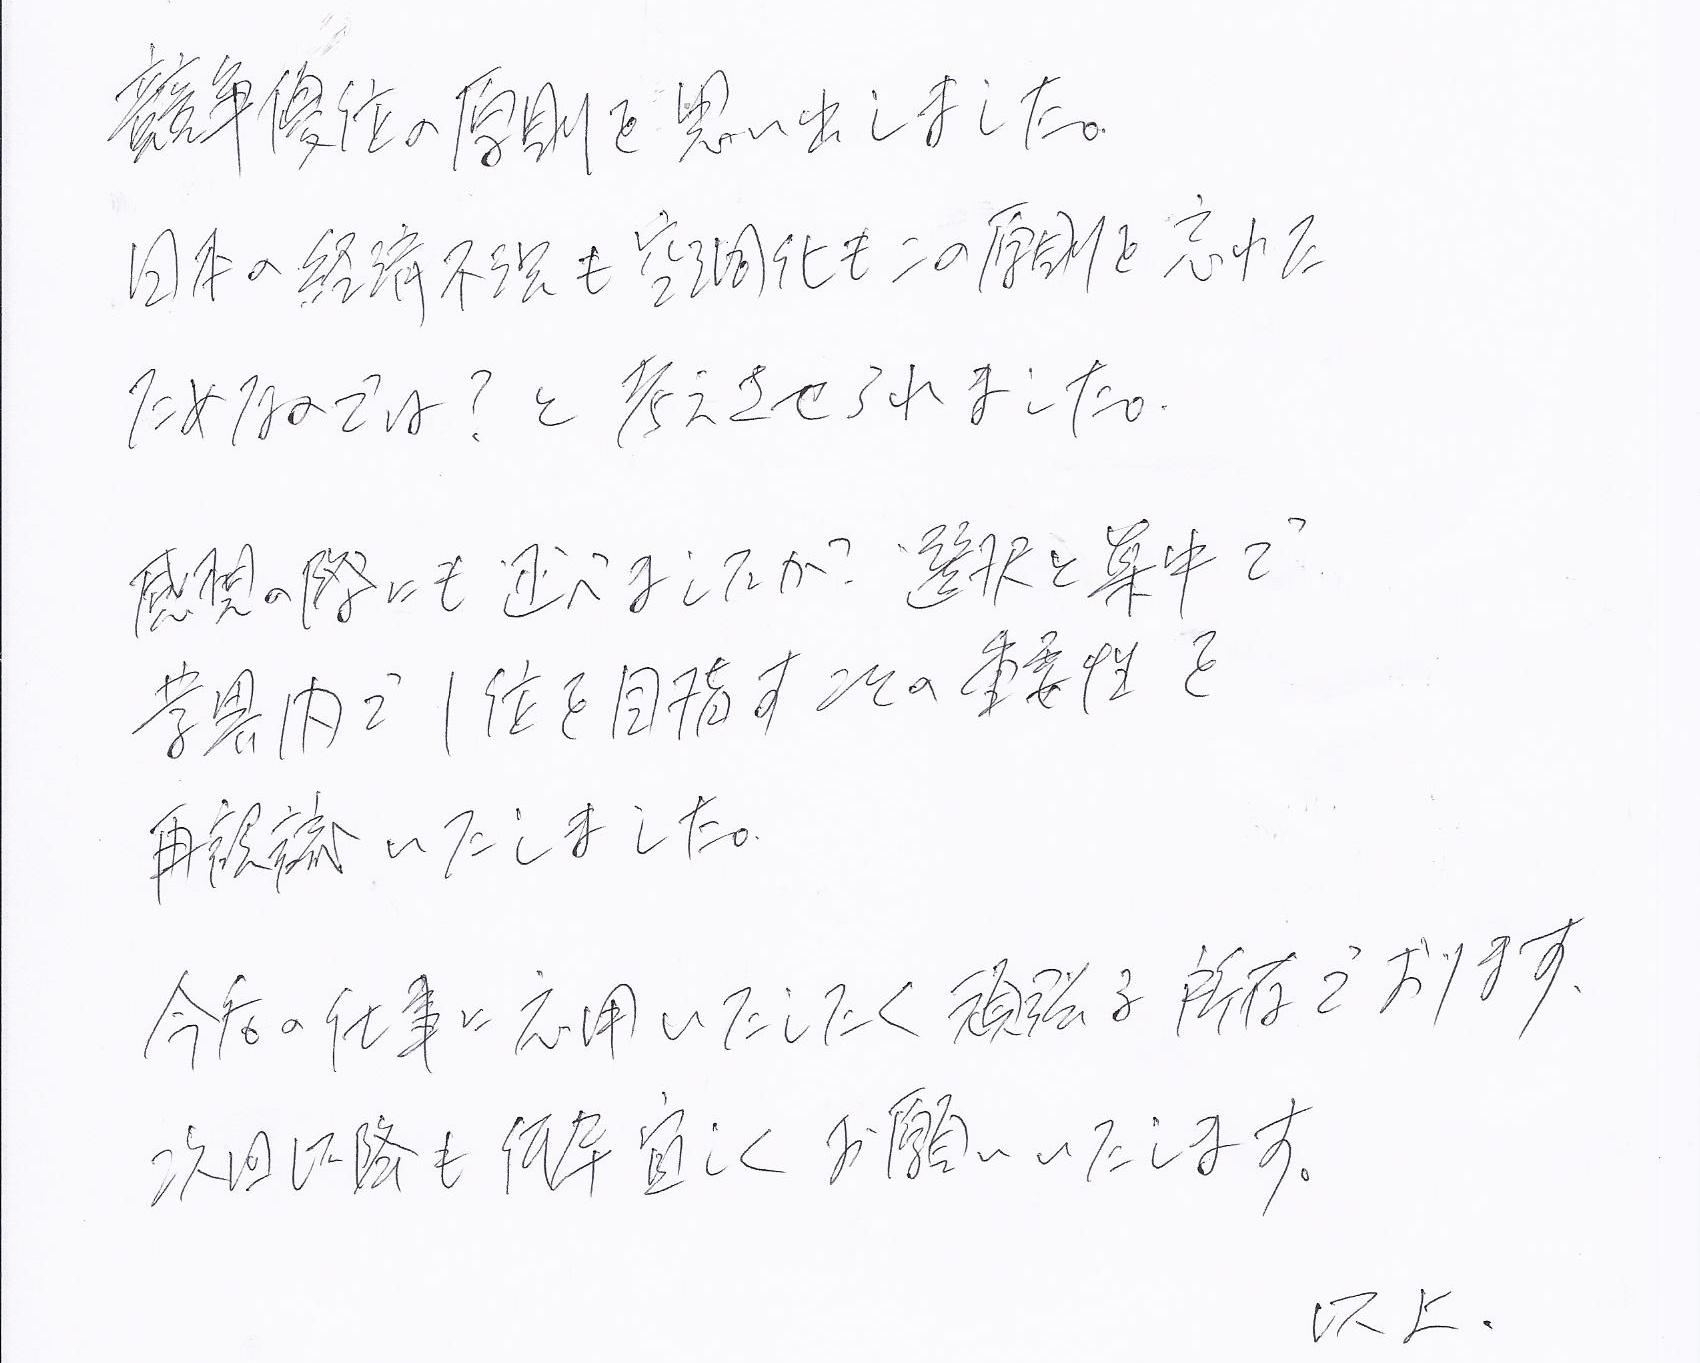 競争優位の原則を思い出しました。
日本の経済不況も空洞化もこの原則を忘れた
ためなのでは?と考えさせられました。
感想の際にも述べましたが、選択と集中で
業界内で1位を目指すことの重要性を
再認識いたしました。
今後の仕事に応用いたしたく頑張る所存でおります、
次回以降も何卒宜しくお願いいたします。
以上.